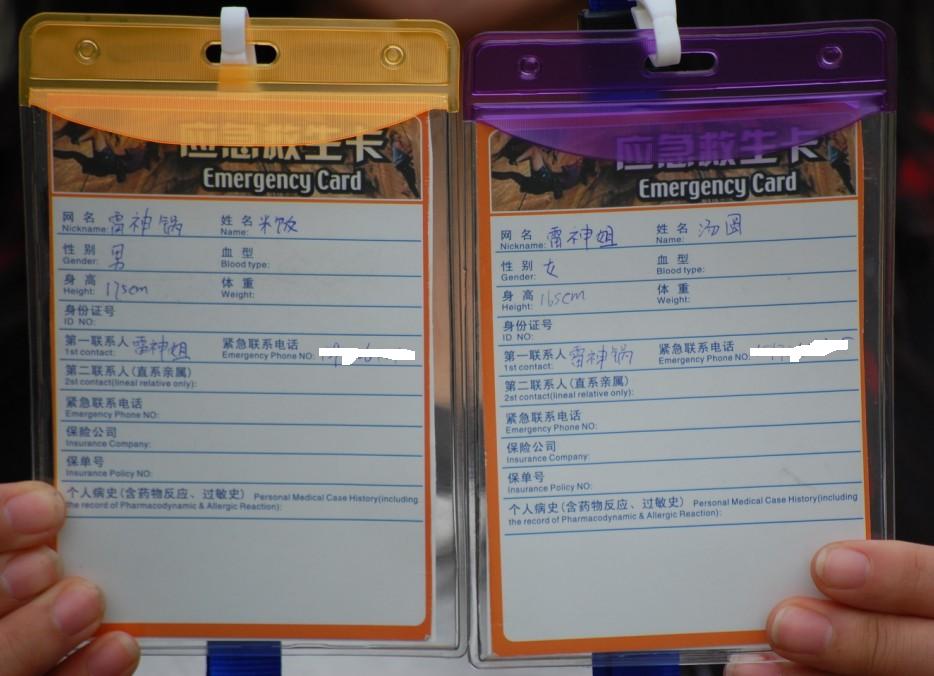 应急救生卡
Emergency Card
网名 雷神锅 姓名 米饭
Nickname: Name:
性别 男 血型
Gender: Blood type:
身高 175cm 体重
Height: Weight:
身份证号
ID NO:
第一联系人 雷神姐 紧急联系电话
1st contact: Emergency Phone NO:
第二联系人(直系亲属)
2st contact(lineal relative only):
紧急联系电话
Emergency Phone NO:
保险公司
Insurance Company:
保单号
Insurance Policy NO:
个人病史(含药物反应、过敏史) Personal Medical Case History(including
the record of Pharmacodynamic & Allergic Reaction):
应急救生卡
Emergency Card
网名 雷神姐 姓名 汤圆
Nickname: Name:
性别 女 血型
Gender: Blood type:
身高 165cm 体重
Height: Weight:
身份证号
ID NO:
第一联系人 雷神锅 紧急联系电话
1st contact: Emergency Phone NO:
第二联系人(直系亲属)
2st contact(lineal relative only):
紧急联系电话
Emergency Phone NO:
保险公司
Insurance Company:
保单号
Insurance Policy NO:
个人病史(含药物反应、过敏史) Personal Medical Case History(including
the record of Pharmacodynamic & Allergic Reaction):